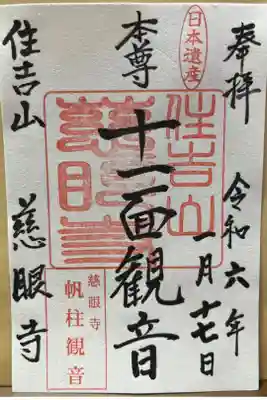 奉拝
令和六年
一月十七日
日本遺産
本尊
十一面観音
住吉山
慈眼寺
住吉山
慈眼寺
慈眼寺
帆柱観音